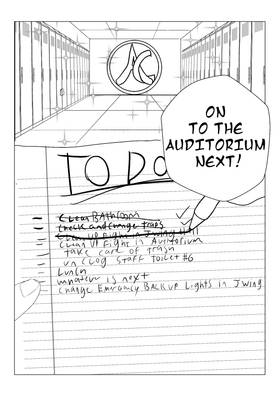 AC
ON
TO THE
AUDITORIUM
NEXT!
TO DO
Clean BAthroom
Check and change traps
Clean UP Fight in J wing # 11
Clean UP Fight in Auditorium
take care of trash
un clog Staff toilet #6
Lunch
whatever is next
Change Emergency Back up Lights in J wing